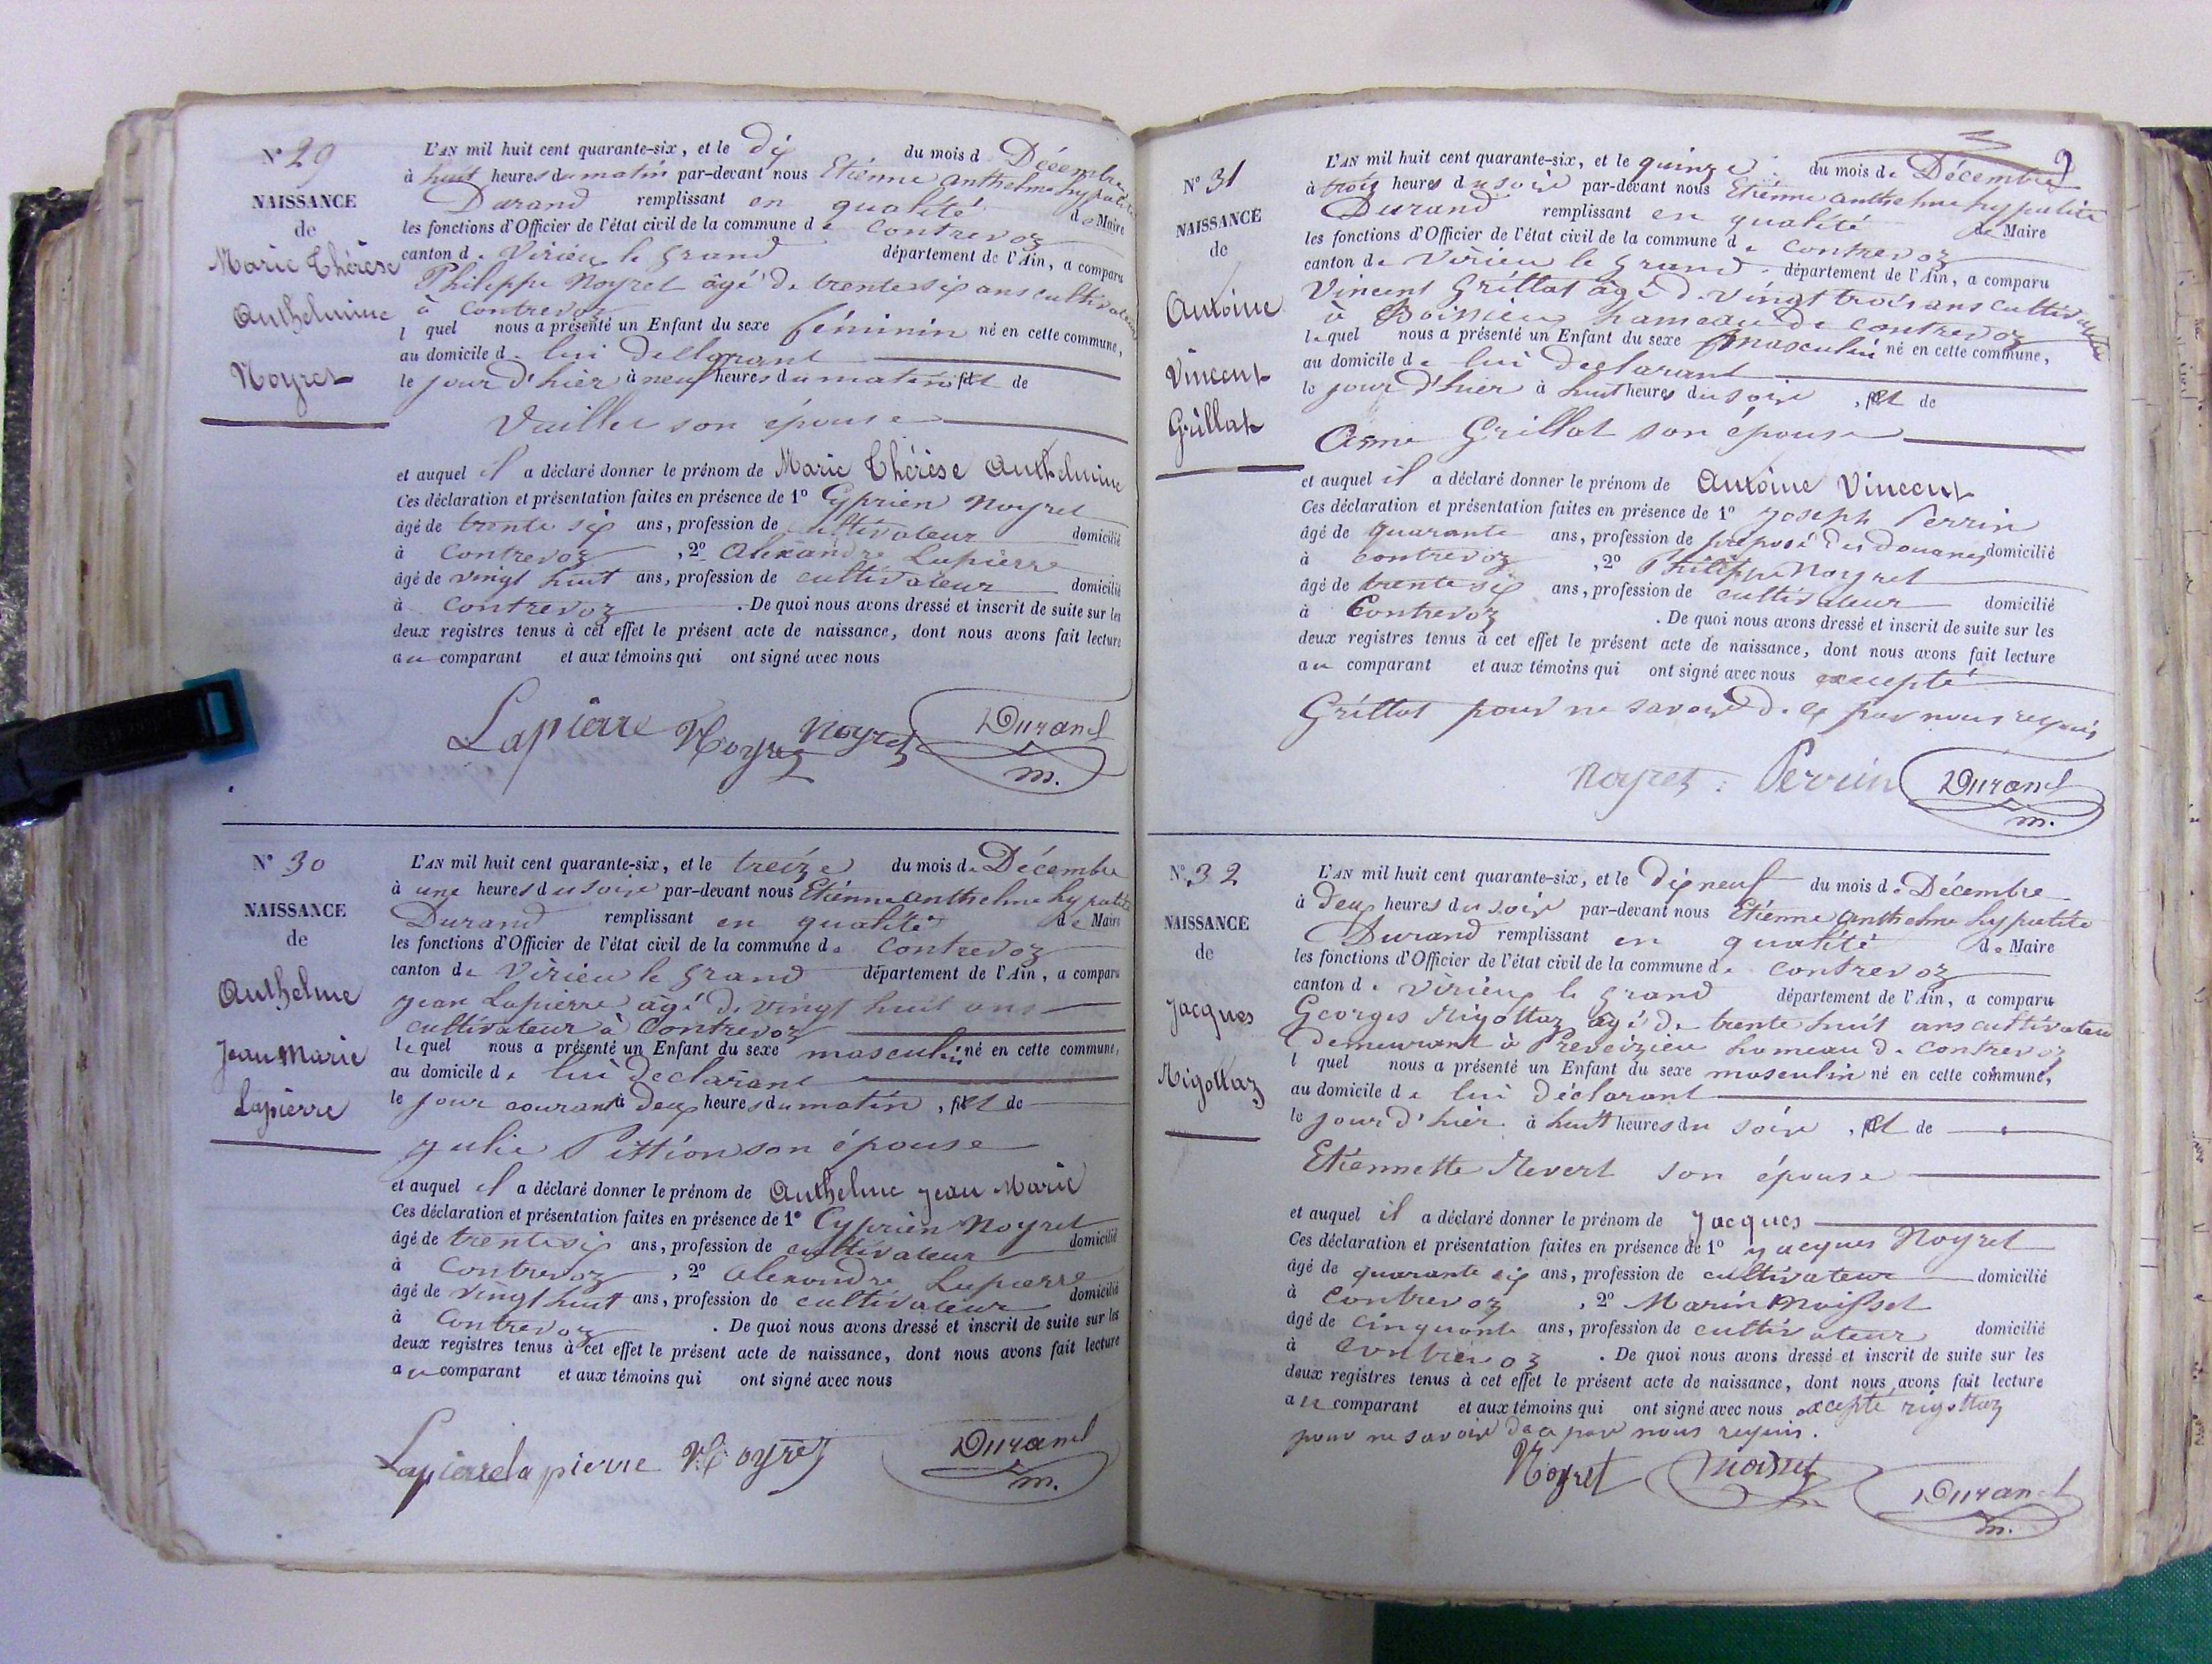 N° 29
NAISSANCE
de
Marie Thérèse
Anthelmine
Noyret
L'AN mil huit cent quarante-six, et le dix du mois d Décembre
à huit heures du matin par-devant nous Etienne anthelme hypolite
Durand remplissant en qualité de Maire
les fonctions d'Officier de l'état civil de la commune de Contrevoz
canton de Virieu le grand département de l'Ain, a comparu
Philippe Noyret âgé de trente six ans cultivateur
à Contrevoz
l quel nous a présenté un Enfant du sexe féminin né en cette commune,
au domicile de lui declarant
le jour d'hier à neuf heures du matin, fils et de
Vaillet son épouse
et auquel il a déclaré donner le prénom de Marie Thérèse Anthelmine
Ces déclaration et présentation faites en présence de 1° Cyprien Noyret
âgé de trente six ans, profession de cultivateur domicilié
à Contrevoz, 2° Alexandre Lapierre
âgé de vingt huit ans, profession de cultivateur domicilié
à Contrevoz. De quoi nous avons dressé et inscrit de suite sur les
deux registres tenus à cet effet le présent acte de naissance, dont nous avons fait lecture
au comparant et aux témoins qui ont signé avec nous
Lapierre Noyret Noyret Durand
m.
N° 30
NAISSANCE
de
Anthelme
Jean Marie
Lapierre
L'AN mil huit cent quarante-six, et le treize du mois de Décembre
à une heures du soir par-devant nous Etienne anthelme hypolite
Durand remplissant en qualité de Maire
les fonctions d'Officier de l'état civil de la commune de Contrevoz
canton de Virieu le grand département de l'Ain, a comparu
Jean Lapierre âgé de vingt huit ans
cultivateur à Contrevoz
le quel nous a présenté un Enfant du sexe masculin né en cette commune,
au domicile de lui declarant
le jour courant à deux heures du matin, fils et de
Julie Pittion son épouse
et auquel il a déclaré donner le prénom de Anthelme Jean Marie
Ces déclaration et présentation faites en présence de 1° Cyprien Noyret
âgé de trente six ans, profession de cultivateur domicilié
à Contrevoz, 2° Alexandre Lapierre
âgé de vingt huit ans, profession de cultivateur domicilié
à Contrevoz. De quoi nous avons dressé et inscrit de suite sur les
deux registres tenus à cet effet le présent acte de naissance, dont nous avons fait lecture
au comparant et aux témoins qui ont signé avec nous
Lapierre lapierre Noyret Durand
m.
9
N° 31
NAISSANCE
de
Antoine
Vincent
Grillat
L'AN mil huit cent quarante-six, et le quinze du mois de Décembre
à trois heures du soir par-devant nous Etienne anthelme hypolite
Durand remplissant en qualité de Maire
les fonctions d'Officier de l'état civil de la commune de Contrevoz
canton de Virieu le grand département de l'Ain, a comparu
Vincent Grillat âgé de vingt trois ans cultivateur
à Boissieu hameau de Contrevoz
le quel nous a présenté un Enfant du sexe masculin né en cette commune,
au domicile de lui declarant
le jour d'hier à huit heures du soir, fils et de
Grillat son épouse
et auquel il a déclaré donner le prénom de Antoine Vincent
Ces déclaration et présentation faites en présence de 1° Joseph Perrin
âgé de quarante ans, profession de préposé des douanes domicilié
à Contrevoz, 2° Philippe Noyret
âgé de trente six ans, profession de cultivateur domicilié
à Contrevoz. De quoi nous avons dressé et inscrit de suite sur les
deux registres tenus à cet effet le présent acte de naissance, dont nous avons fait lecture
au comparant et aux témoins qui ont signé avec nous excepté
Grillat pour ne savoir de ce par nous requis
Noyret Perrin Durand
m.
N° 32
NAISSANCE
de
Jacques
Rigottaz
L'AN mil huit cent quarante-six, et le dix neuf du mois de Décembre
à deux heures du soir par-devant nous Etienne anthelme hypolite
Durand remplissant en qualité de Maire
les fonctions d'Officier de l'état civil de la commune de Contrevoz
canton de Virieu le grand département de l'Ain, a comparu
Georges Rigottaz âgé de trente huit ans cultivateur
demeurant à Preveizieu hameau de Contrevoz
l quel nous a présenté un Enfant du sexe masculin né en cette commune,
au domicile de lui déclarant
le jour d'hier à huit heures du soir, fils et de
Etiennette Revert son épouse
et auquel il a déclaré donner le prénom de Jacques
Ces déclaration et présentation faites en présence de 1° Jacques Noyret
âgé de quarante six ans, profession de cultivateur domicilié
à Contrevoz, 2° Marin Moisset
âgé de cinquante ans, profession de cultivateur domicilié
à Contrevoz. De quoi nous avons dressé et inscrit de suite sur les
deux registres tenus à cet effet le présent acte de naissance, dont nous avons fait lecture
au comparant et aux témoins qui ont signé avec nous excepté rigottaz
pour ne savoir de ce par nous requis.
Noyret Moisset Durand
m.